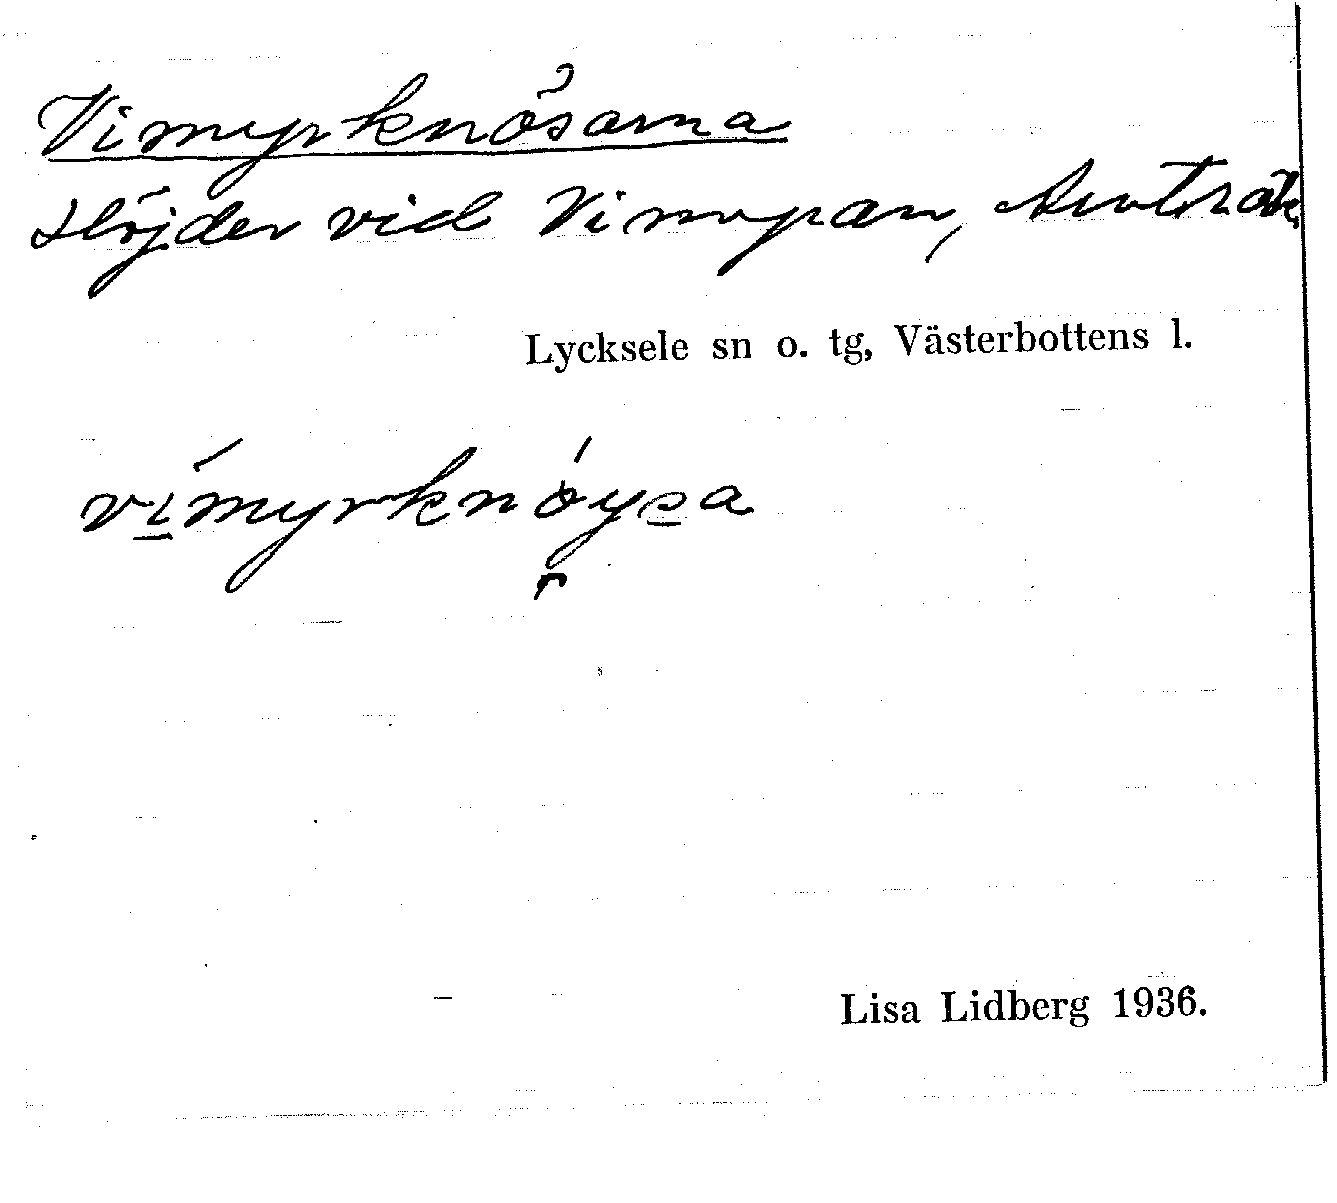 Vimyrknösarna
Höjder vid Vimyran,
Lycksele sn o. tg, Västerbottens l.
vímyrknøysa
Lisa Lidberg 1936.